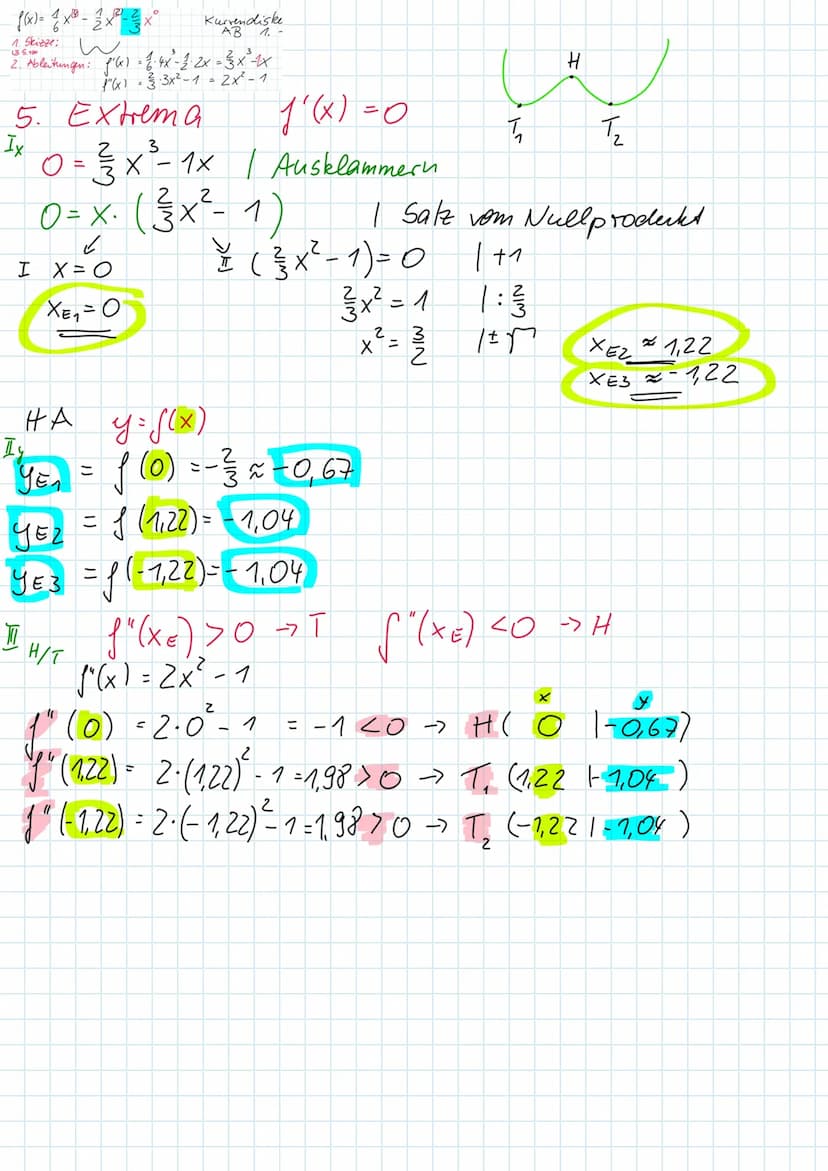 f(x) = 1/6 x⁴ - 1/2 x² - 2/3 x⁰ Kurvendiske
AB 1. -
1. Skizze:
2. Ableitungen: f'(x) = 1/6 · 4x³ - 1/2 · 2x = 2/3 x³ - 1x
f''(x) = 2/3 · 3x² - 1 = 2x² - 1
H
T₁ T₂
5. Extrema f'(x) = 0
Iₓ
0 = 2/3 x³ - 1x | Ausklammern
0 = x · (2/3 x² - 1) | Satz vom Nullprodukt
I x = 0 II (2/3 x² - 1) = 0 | +1
x_E1 = 0 2/3 x² = 1 | : 2/3
x² = 3/2 | ±√ x_E2 ≈ 1,22
x_E3 ≈ -1,22
HA y = f(x)
II y
y_E1 = f(0) = -2/3 ≈ -0,67
y_E2 = f(1,22) = -1,04
y_E3 = f(-1,22) = -1,04
III H/T f''(x_E) > 0 → T f''(x_E) < 0 → H
f''(x) = 2x² - 1
x y
f''(0) = 2·0² - 1 = -1 < 0 → H(0 | -0,67)
f''(1,22) = 2·(1,22)² - 1 = 1,98 > 0 → T₁ (1,22 | -1,04)
f''(-1,22) = 2·(-1,22)² - 1 = 1,98 > 0 → T₂ (-1,22 | -1,04)